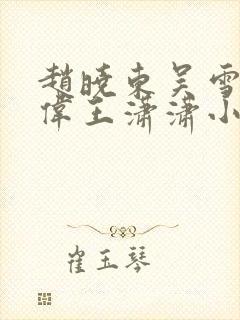 趙曉東吳雪
偉王瀟瀟小
崔玉琴